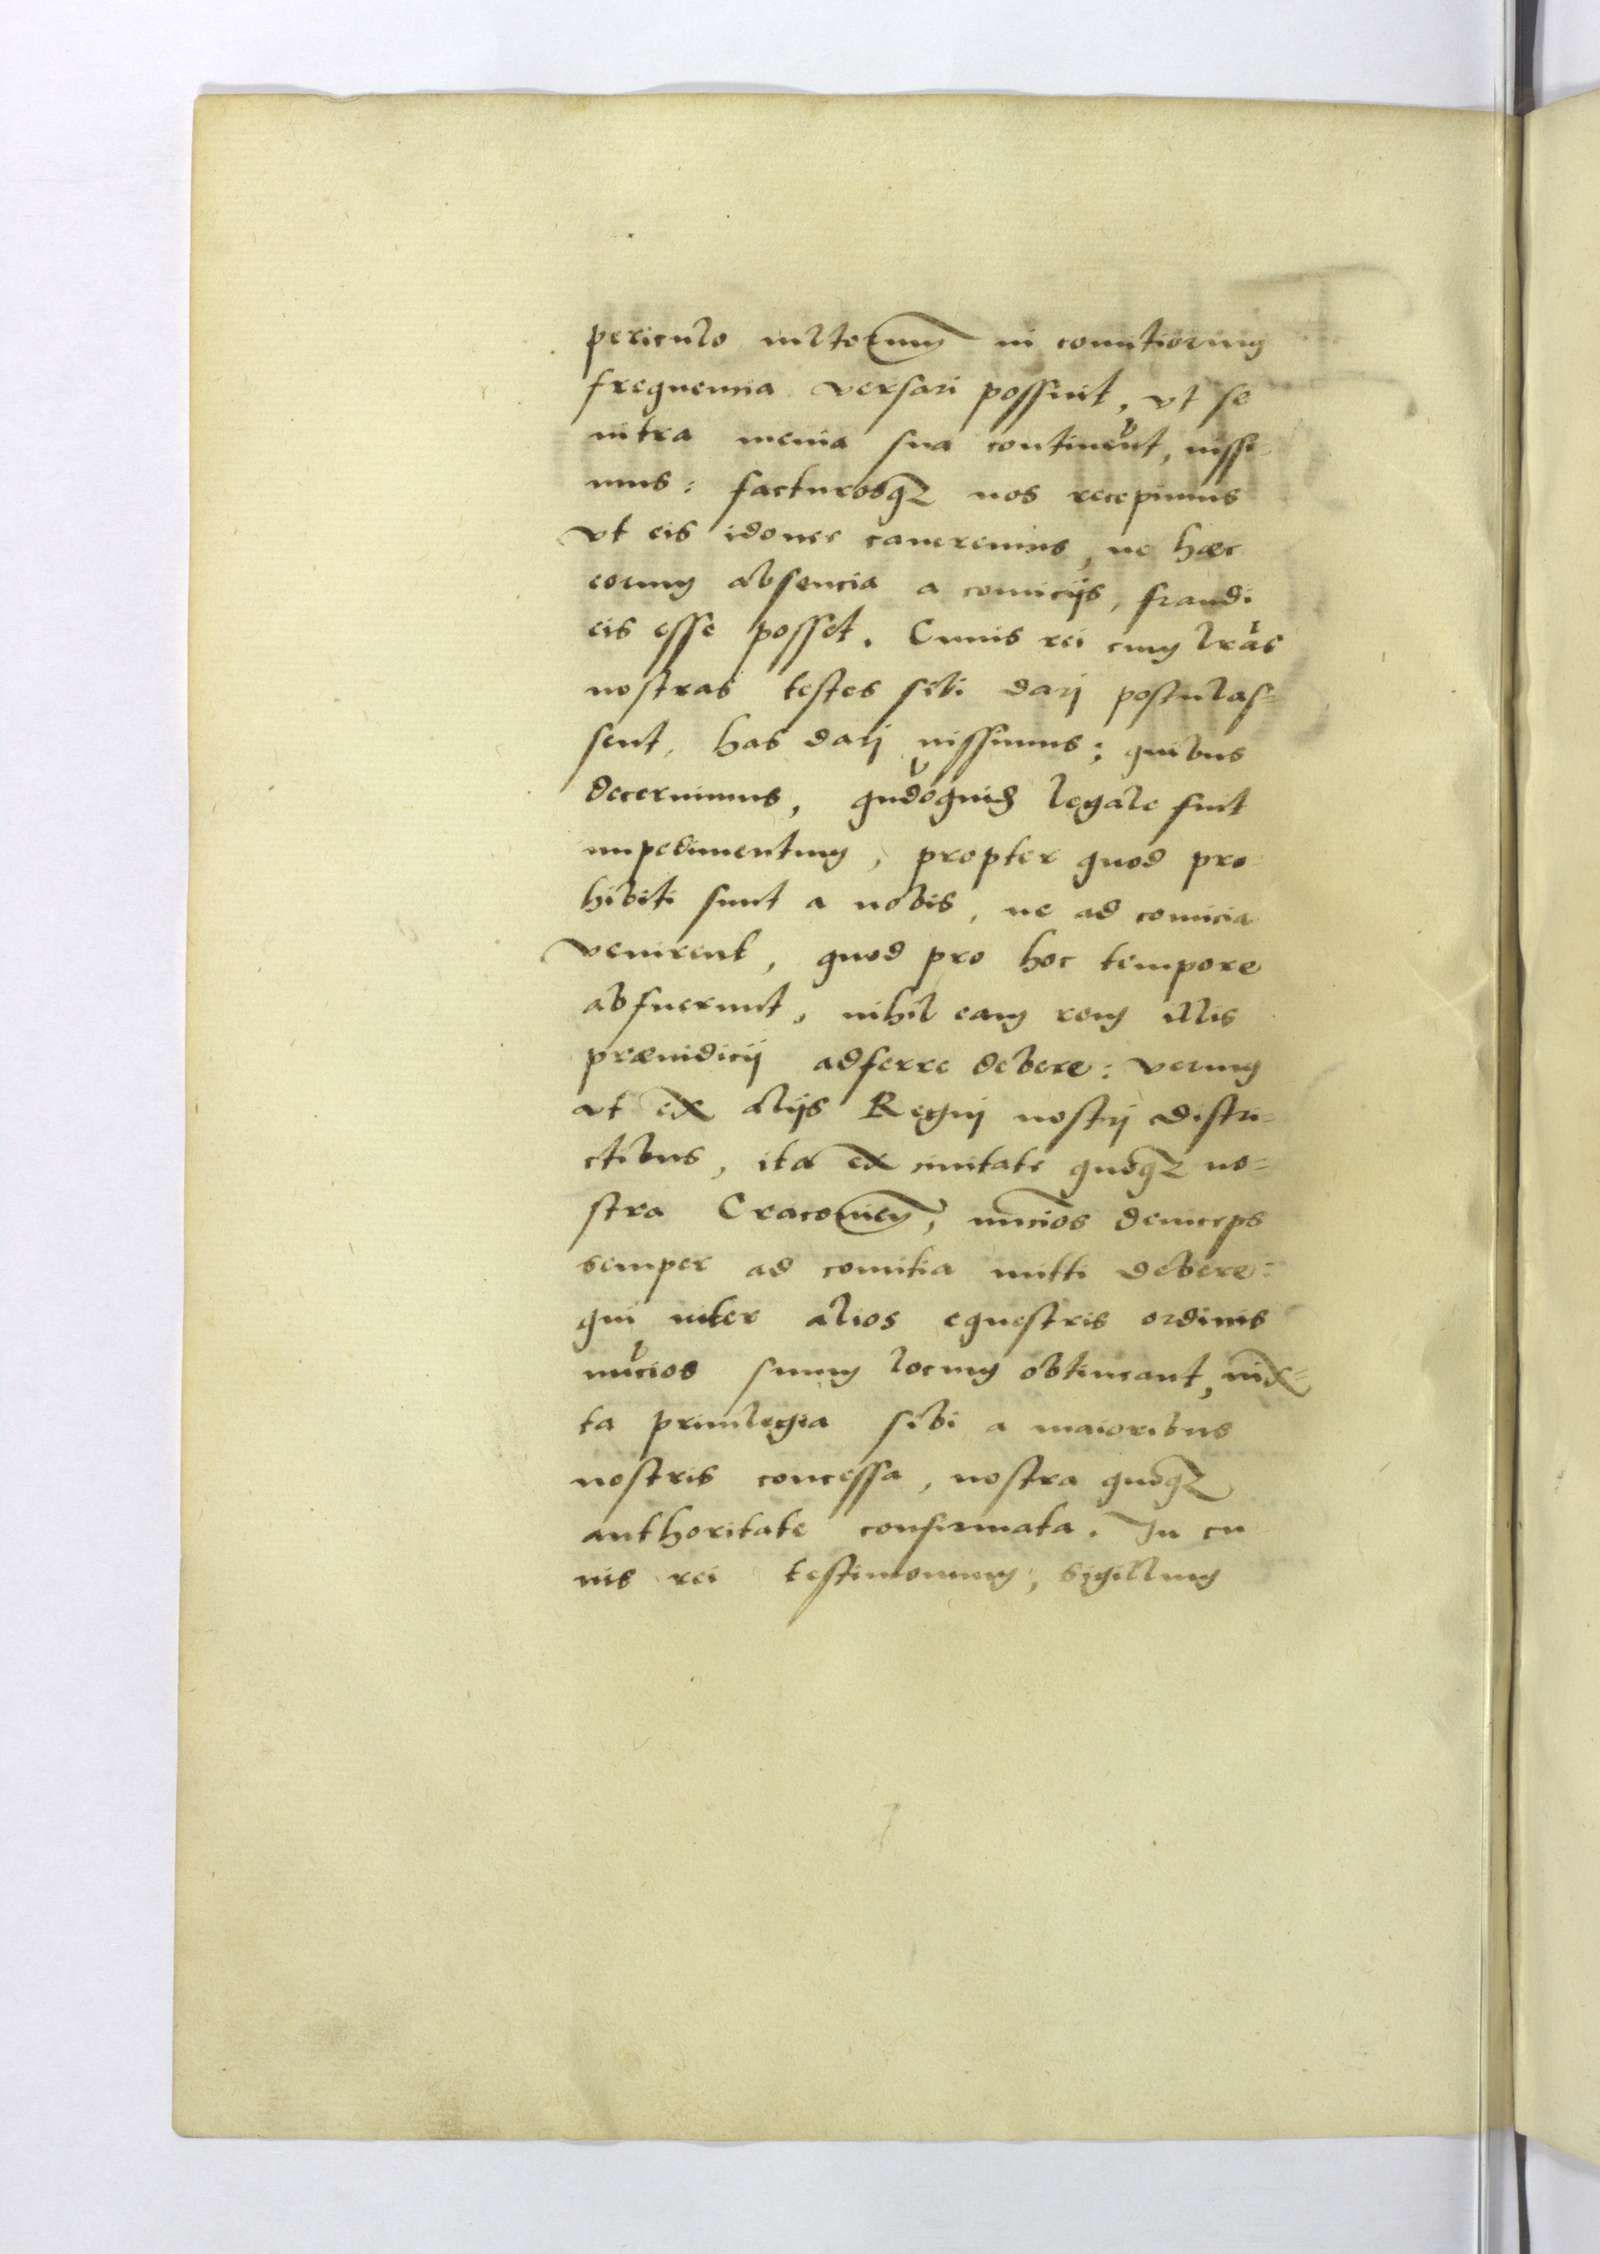 periculo multorum in comitiorum
frequentia versari possint, vt se
intra menia sua continerent, iussi-
mus: facturosq3 nos recepimus
vt eis idonee caueremus, ne hæc
eorum absencia a comicijs, fraudi
eis esse posset. Cuius rei cum lr̃as
nostras testes sibi darj postulas-
sent, has darj iussimus: quibus
decernimus, quãdoquid legale fuit
impedimentum, propter quod pro
hibiti sunt a nobis, ne ad comicia
venirent, quod pro hoc tempore
abfuerunt, nihil eam rem illis
præiudicij adferre debere: verum
vt ex alijs Regnj nostrj distri-
ctibus, ita ex ciuitate quoq3 no-
stra Cracouien, nuncios deinceps
semper ad comitia mitti debere:
qui inter alios equestris ordinis
nũcios suum locum obtineant, iux-
ta priuilegia sibi a maioribus
nostris concessa, nostra quoq3
authoritate confirmata. In cu
ius rei testimonium, sigillum